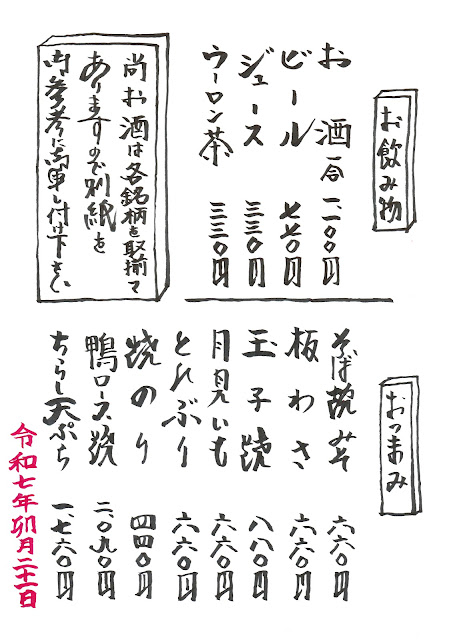 お飲み物
お酒 一合 一、一〇〇円
ビール 七七〇円
ジュース 三三〇円
ウーロン茶 三三〇円
尚お酒は各銘柄を取揃て
ありますので別紙を
御参考に御申し付け下さい
おつまみ
そば焼みそ 六六〇円
板わさ 六六〇円
玉子焼 八八〇円
月見いも 六六〇円
とんぶり 六六〇円
焼のり 四四〇円
鴨ロース焼 二、〇九〇円
ちらし天ぷら 一、七六〇円
令和七年卯月二十一日